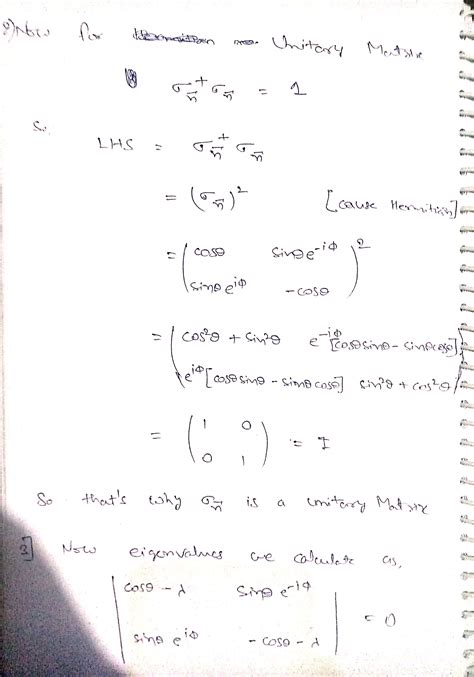 2) Now for Unitary Matrix
σ_n⃗^+ σ_n⃗ = 1
So
LHS = σ_n⃗^+ σ_n⃗
= (σ_n⃗)^2 [cause Hermitian]
= ( cosθ sinθ e^{-iφ} )^2
( sinθ e^{iφ} -cosθ )
= ( cos²θ + sin²θ e^{-iφ}[cosθ sinθ - sinθ cosθ] )
( e^{iφ}[cosθ sinθ - sinθ cosθ] sin²θ + cos²θ )
= ( 1 0 ) = I
( 0 1 )
So that's why σ_n⃗ is a unitary Matrix
3] Now eigenvalues we calculate as,
| cosθ - λ sinθ e^{-iφ} | = 0
| sinθ e^{iφ} - cosθ - λ |